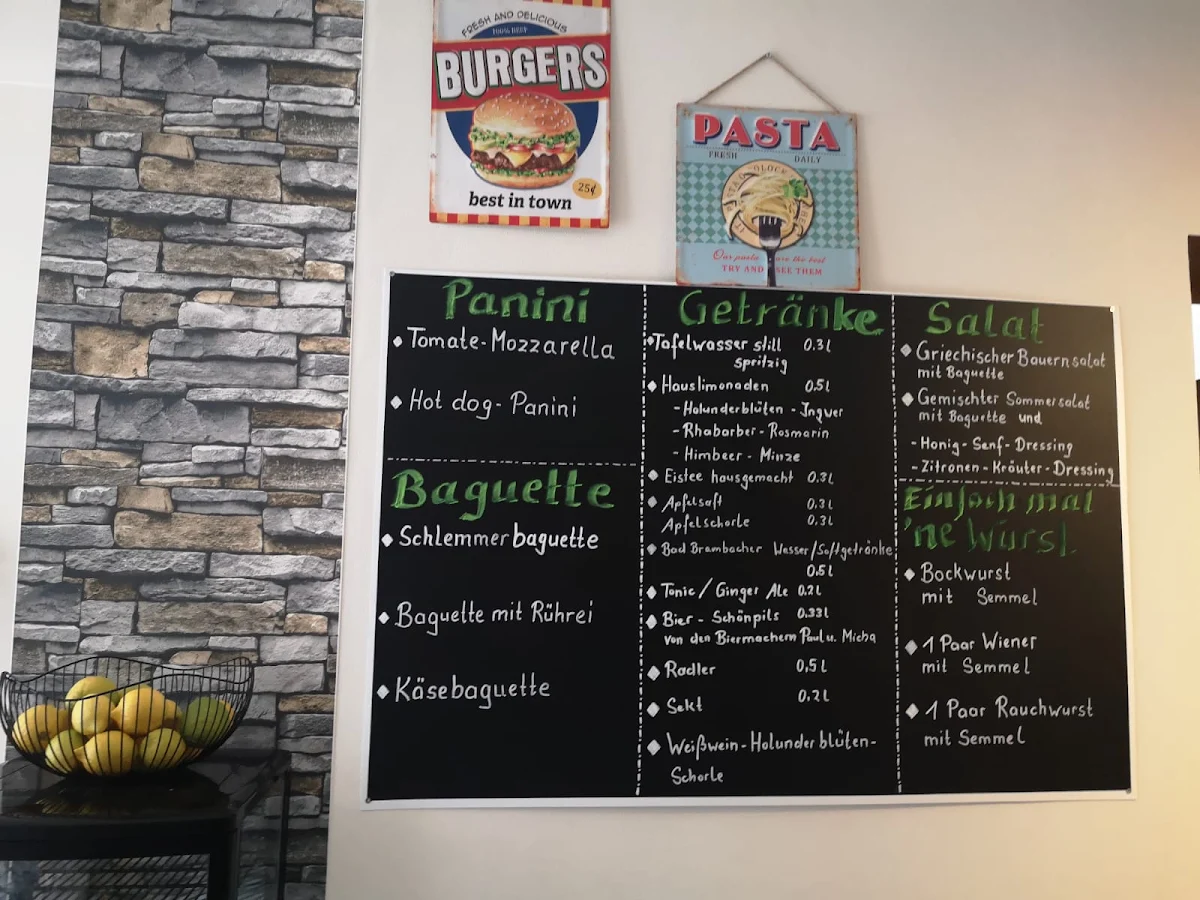 FRESH AND DELICIOUS
100% BEEF
BURGERS
25¢
best in town
PASTA
FRESH DAILY
Our pasta are the best
TRY AND SEE THEM
Panini
Tomate-Mozzarella
Hot dog-Panini
Baguette
Schlemmerbaguette
Baguette mit Rührei
Käsebaguette
Getränke
Tafelwasser still 0.3l
spritzig
Hauslimonaden 0,5l
- Holunderblüten - Ingwer
- Rhabarber - Rosmarin
- Himbeer - Minze
Eistee hausgemacht 0.3l
Apfelsaft 0.3l
Apfelschorle 0.3l
Bad Brambacher Wasser/Softgetränke
0.5l
Tonic / Ginger Ale 0.2l
Bier - Schönpils 0.33l
von den Biermachern Paul u. Micha
Radler 0,5l
Sekt 0,2l
Weißwein-Holunderblüten-
Schorle
Salat
Griechischer Bauernsalat
mit Baguette
Gemischter Sommersalat
mit Baguette und
- Honig-Senf-Dressing
- Zitronen-Kräuter-Dressing
Einfach mal
'ne Wurst
Bockwurst
mit Semmel
1 Paar Wiener
mit Semmel
1 Paar Rauchwurst
mit Semmel